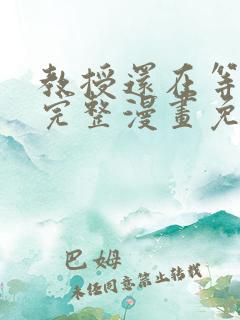 教授還在等
完整漫畫免
巴姆
未經同意禁止轉載